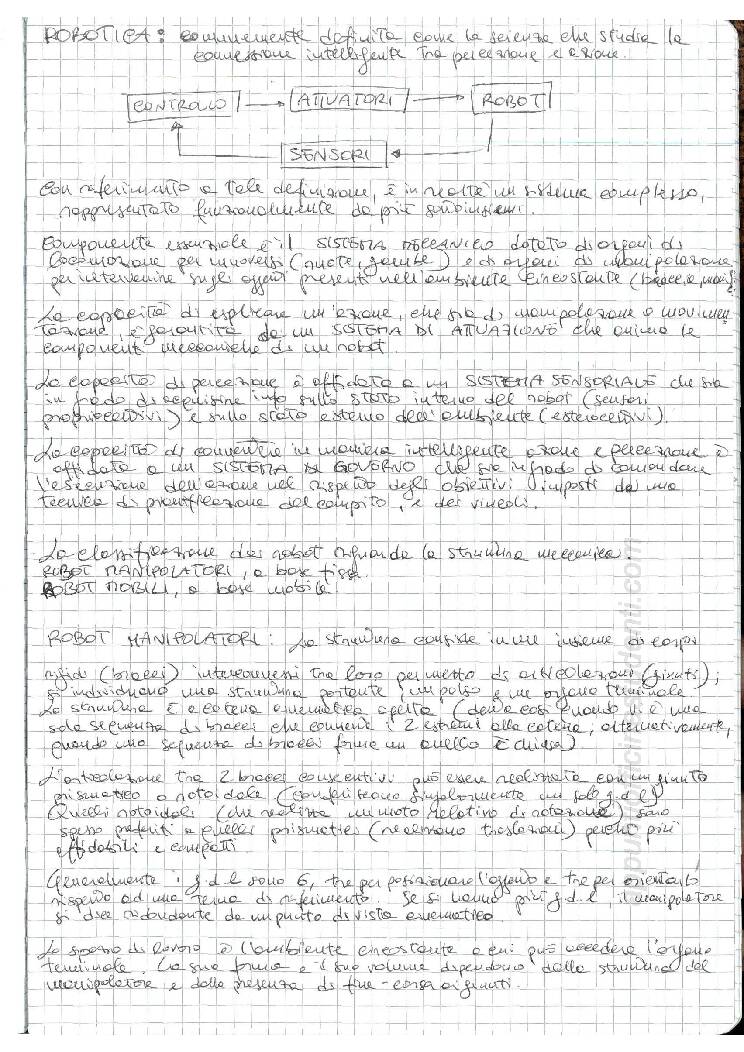 ROBOTICA: comunemente definita come la scienza che studia la
connessione intelligente tra percezione e azione.
CONTROLLO ATTUATORI ROBOT
SENSORI
Con riferimento a tale definizione, è in realtà un sistema complesso,
rappresentato funzionalmente da più sottoinsiemi.
Componente essenziale è il SISTEMA MECCANICO dotato di organi di
locomozione per muoversi (ruote, gambe) e di organi di manipolazione
per intervenire sugli oggetti presenti nell'ambiente circostante (braccia, mani).
La capacità di esplicare un'azione, che sia di manipolazione o movimen
tazione, è garantita da un SISTEMA DI ATTUAZIONE che anima le
componenti meccaniche di un robot.
La capacità di percezione è affidata a un SISTEMA SENSORIALE che sia
in grado di acquisire info sullo stato interno del robot (sensori
propriocettivi) e sullo stato esterno dell'ambiente (esterocettivi).
La capacità di connettere in maniera intelligente azione e percezione è
affidata a un SISTEMA DI GOVERNO che sia in grado di comandare
l'esecuzione dell'azione nel rispetto degli obiettivi imposti da una
tecnica di pianificazione del compito, e dei vincoli.
La classificazione dei robot riguarda la struttura meccanica:
ROBOT MANIPOLATORI, a base fissa.
ROBOT MOBILI, a base mobile.
ROBOT MANIPOLATORI: La struttura consiste in un insieme di corpi
rigidi (bracci) interconnessi tra loro per mezzo di articolazioni (giunti);
si individuano una struttura portante, un polso e un organo terminale.
La struttura è a catena cinematica aperta (detta così quando vi è una
sola sequenza di bracci che connette i 2 estremi alla catena; alternativamente,
quando una sequenza di bracci forma un anello è chiusa)
L'articolazione tra 2 bracci consecutivi può essere realizzata con un giunto
prismatico o rotoidale (conferiscono singolarmente un solo g.d.l)
Quelli rotoidali (che realizza un moto relativo di rotazione) sono
spesso preferiti a quelli prismatici (realizzano traslazioni) perché più
affidabili e compatti.
Generalmente i g.d.l sono 6, tre per posizionare l'oggetto e tre per orientarlo
rispetto ad una terna di riferimento. Se si hanno più g.d.l il manipolatore
si dice ridondante da un punto di vista cinematico.
Lo spazio di lavoro è l'ambiente circostante a cui può accedere l'organo
terminale. La sua forma e il suo volume dipendono dalla struttura del
manipolatore e dalla presenza di fine-corsa ai giunti.